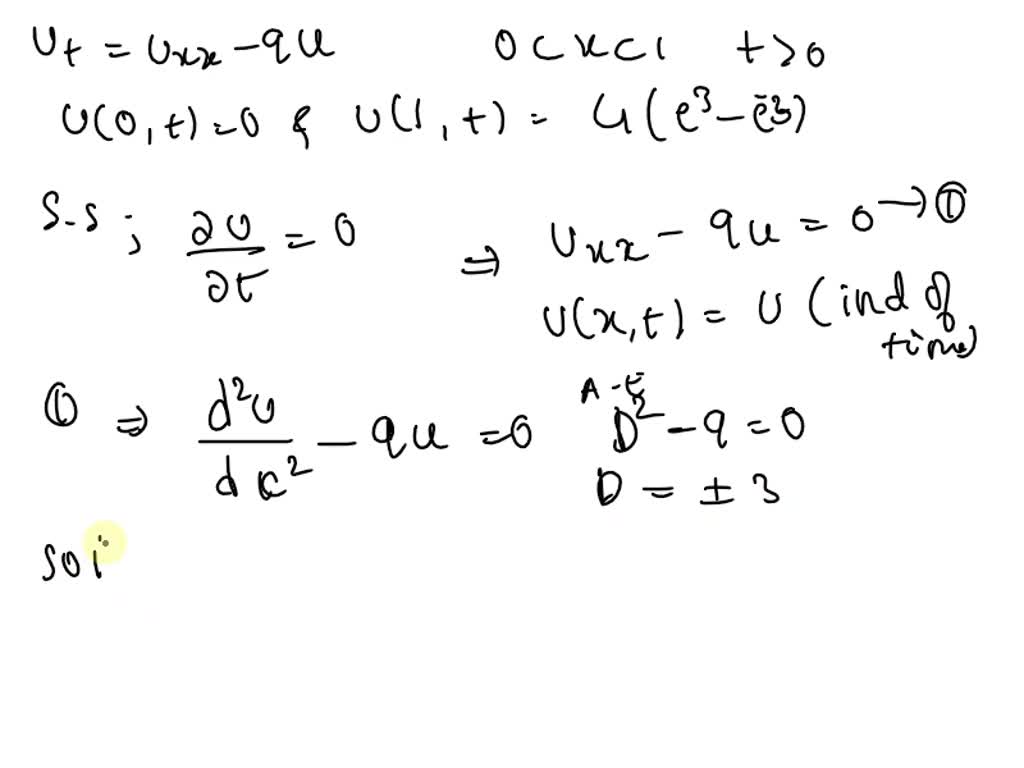 Ut = Uxx - 9u 0 < x < 1 t > 0
U(0,t) = 0 & U(1,t) = 4(e³ - e⁻³)
S-S ; ∂U/∂t = 0 ⇒ Uxx - 9u = 0 → ①
U(x,t) = U (ind of time)
① ⇒ d²U/dx² - 9u = 0 A-E D² - 9 = 0
D = ± 3
Sol